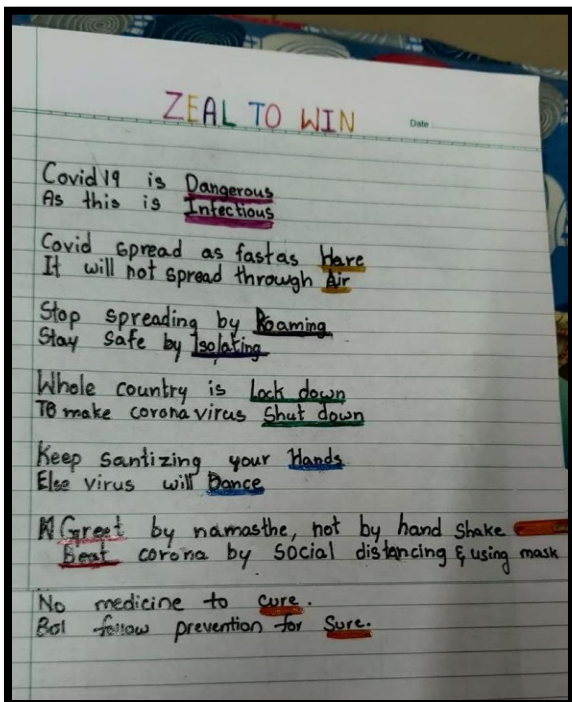 ZEAL TO WIN
Date
Covid19 is Dangerous
As this is Infectious
Covid spread as fast as Hare
It will not spread through Air
Stop spreading by Roaming
Stay safe by Isolating
Whole country is Lock down
To make corona virus Shut down
Keep santizing your Hands
Else virus will Dance
Greet by namasthe, not by hand shake
Beat corona by social distancing & using mask
No medicine to cure.
follow prevention for Sure.